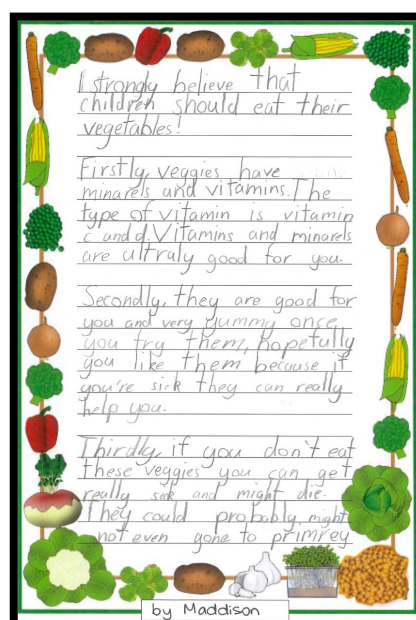 I strongly believe that
children should eat their
vegetables!
Firstly, veggies have
minarels and vitamins. The
type of vitamin is vitamin
c and d. Vitamins and minarels
are ultraly good for you.
Secondly, they are good for
you and very yummy once
you try them, hopefully
you like them because if
you're sick they can really
help you.
Thirdly, if you don't eat
these veggies you can get
really sick and might die.
They could probably might
not even gone to primrey
by Maddison